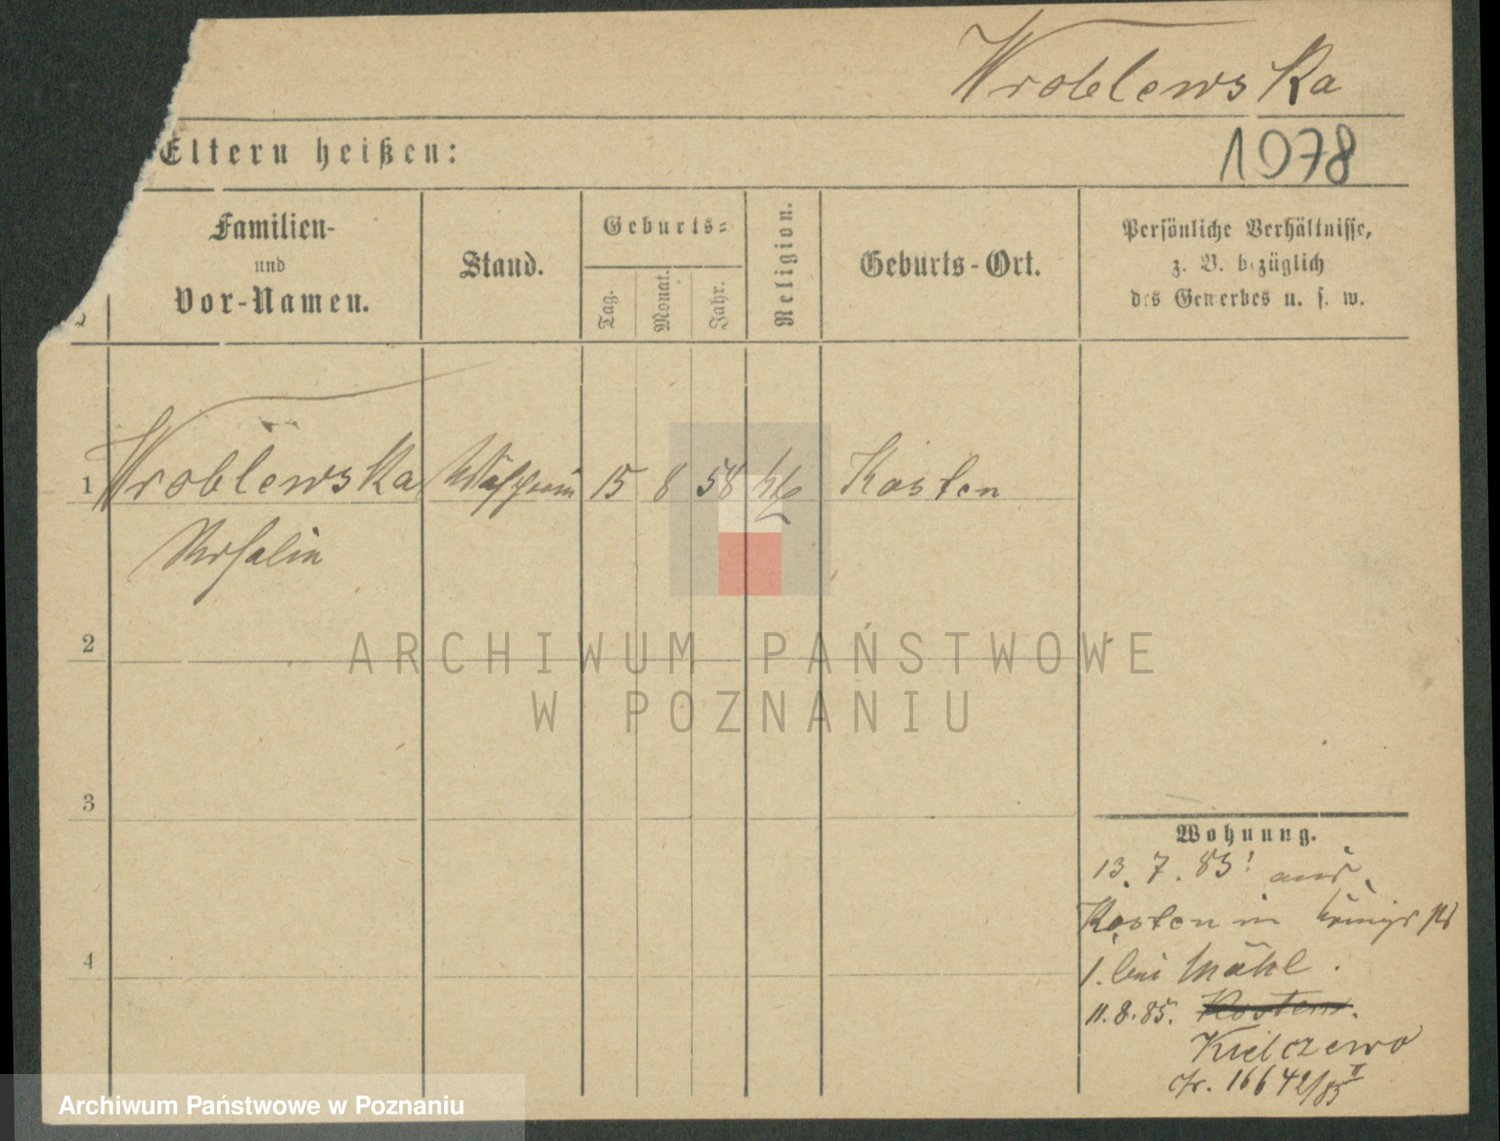 Wroblewska
Eltern heißen:
1078
Familien-
und
Vor-Namen.
Stand.
Geburts-
Tag.
Monat.
Jahr.
Religion.
Geburts-Ort.
Persönliche Verhältnisse,
z. B. bezüglich
des Gewerbes u. s. w.
1 Wroblewska 15 8 58 kth Kosten
2
3
4
ARCHIWUM PAŃSTWOWE
W POZNANIU
Wohnung.
13. 7. 83! aus
Kosten in Königspl
1. bei Mähl.
11.8.85. Kosten.
Kielczewo
Jr. 16642/85 II
Archiwum Państwowe w Poznaniu